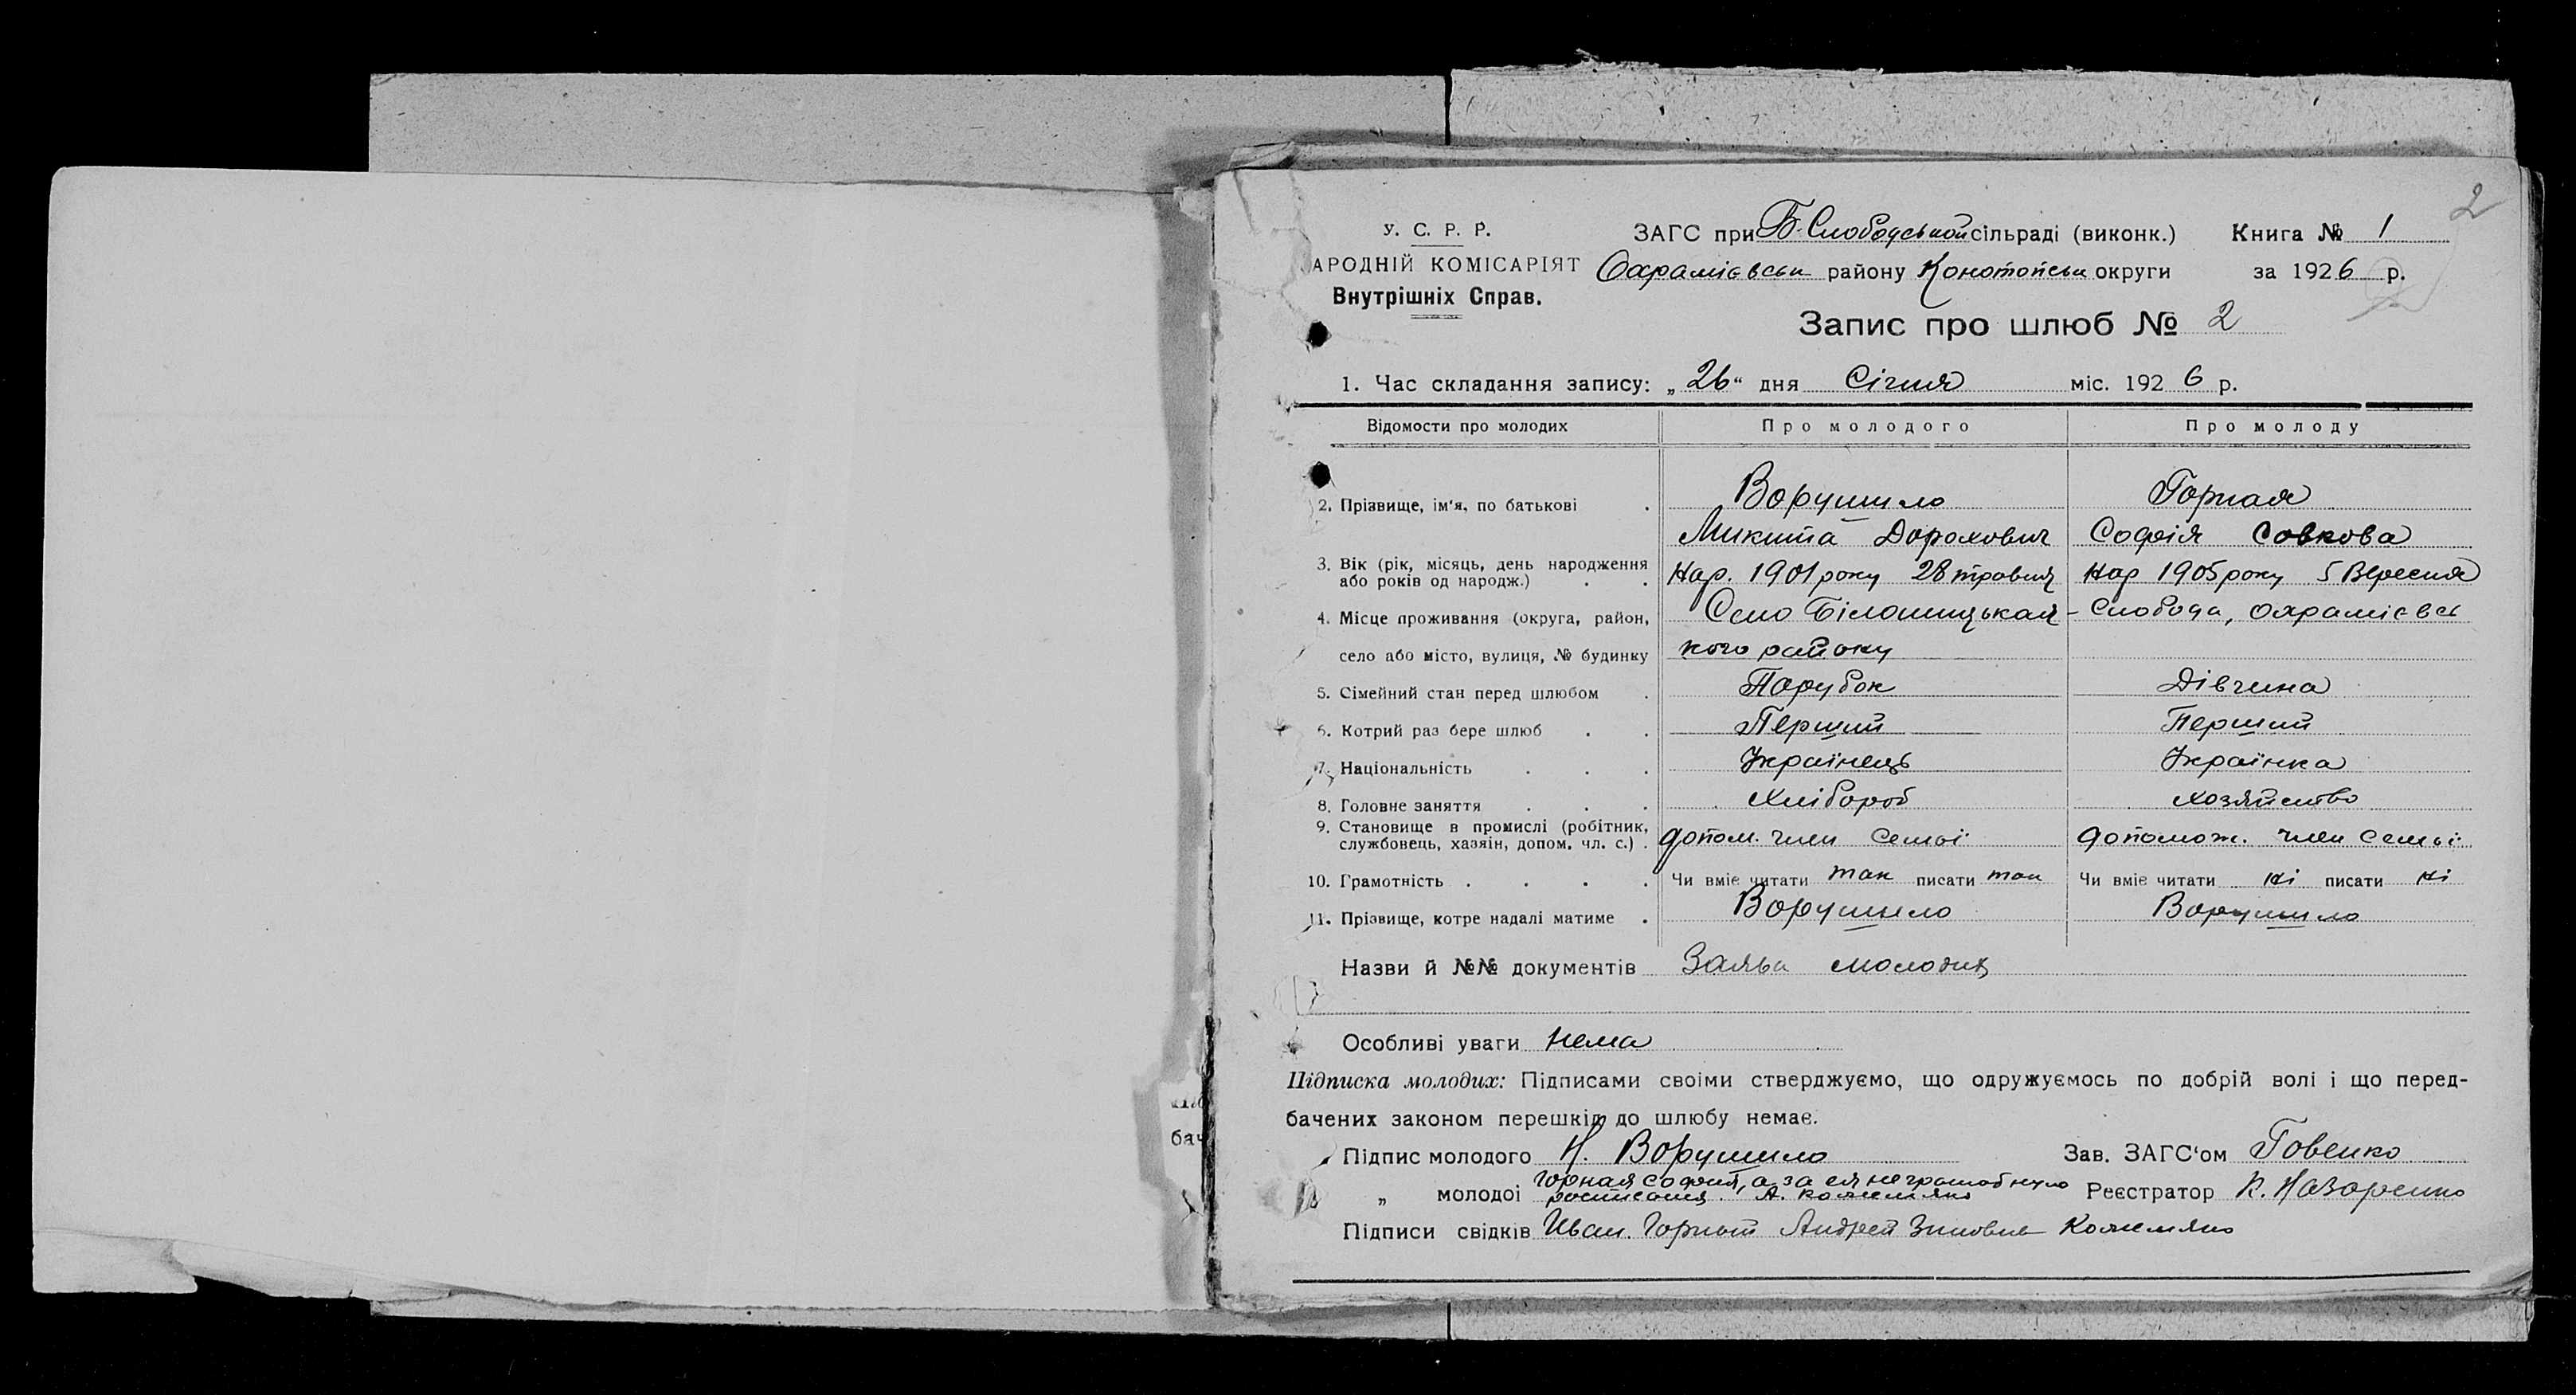 2
У. С. Р. Р.
АРОДНІЙ КОМІСАРІЯТ
Внутрішніх Справ.
ЗАГС при Б-Слободськой сільраді (виконк.) Книга № 1
Охрамієвськ району Конотопськ округи за 1926 р.
Запис про шлюб № 2
1. Час складання запису: „26“ дня Січня міс. 1926 р.
Відомости про молодих Про молодого Про молоду
2. Прізвище, ім'я, по батькові . Ворушило Горная
Микита Дорохович Софія Совкова
3. Вік (рік, місяць, день народження
або років од народж.) . . Нар. 1901 року 28 травня Нар 1905 року 5 Вересня
4. Місце проживання (округа, район, Село Білошицькая - Слобода, Охрамієвсь
село або місто, вулиця, № будинку кого району
5. Сімейний стан перед шлюбом . Парубок Дівчина
6. Котрий раз бере шлюб . . Перший Перший
7. Національність . . . Українець Українка
8. Головне заняття . . . Хлібороб хозяйство
9. Становище в промислі (робітник,
службовець, хазяін, допом. чл. с.) . допом. член семьї допомож. член семьї
10. Грамотність . . . . Чи вміє читати так писати так Чи вміє читати ні писати ні
11. Прізвище, котре надалі матиме . Ворушило Ворушило
Назви й №№ документів Заява молодих
Особливі уваги нема
Підписка молодих: Підписами своїми стверджуємо, що одружуємось по добрій волі і що перед-
бачених законом перешкід до шлюбу немає.
бач
Підпис молодого Н. Ворушило Зав. ЗАГС‘ом Говенко
„ молодоі Горная София, а за ея неграмотную
росписался А. Кожемяко Реєстратор К. Назаренко
Підписи свідків Иван Горный Андрей Кожемяко